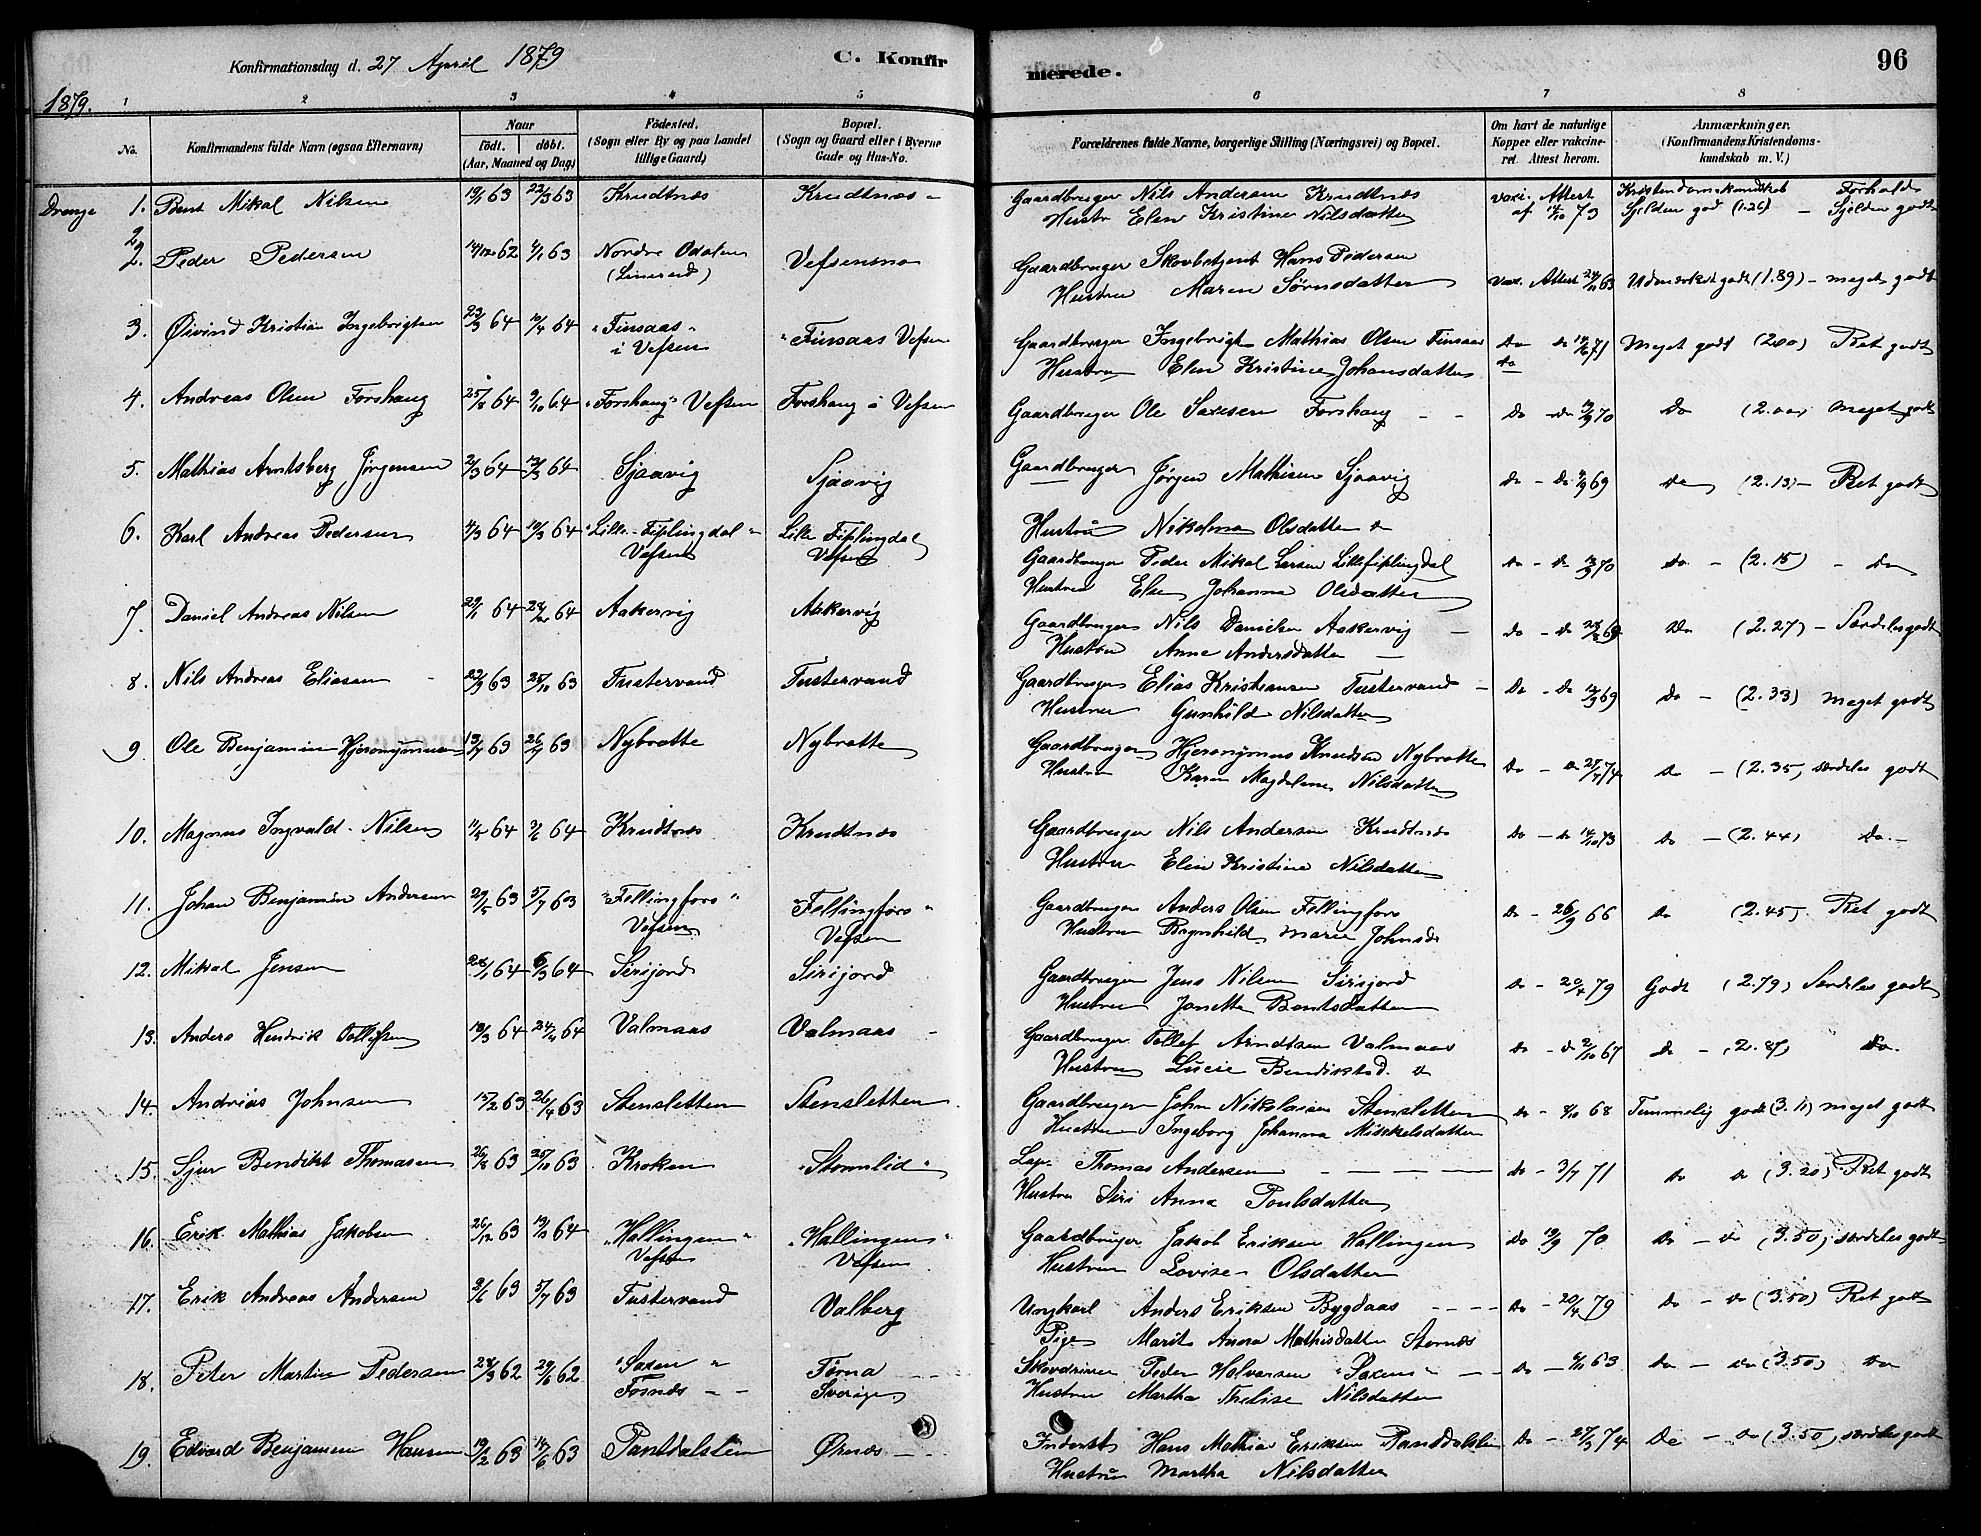 Konfirmationsdag d. 27 April 1879
C. Konfirmerede.
96
1879.
1 2 3 4 5 6 7 8
No.
Konfirmandens fulde Navn (ogsaa Efternavn)
Naar
født. døbt.
(Aar, Maaned og Dag)
Fødested.
(Sogn eller By og paa Landet
tillige Gaard)
Bopæl.
(Sogn og Gaard eller i Byerne
Gade og Hus-No.
Forældrenes fulde Navne, borgerlige Stilling (Næringsvei) og Bopæl.
Om havt de naturlige
Kopper eller vakcine-
ret. Attest herom.
Anmærkninger.
(Konfirmandens Kristendoms-
kundskab m. V.)
Drenge 1. Bent Mikal Nilsen 19/1 63 22/3 63 Krudtnæs Krudtnæs - Gaardbruger Nils Andersen Krudtnæs vaxi. Attest Kristendomskundskab Forholds
Hustr Elen Kristine Nilsdatter af 14/10 73 Sjelden god (1.26) - Sjelden godt
2. Peder Pedersen 14/12 62 4/1 63 Nordre Odalen Vefsensmo Gaardbruger Skovbetjent Hans Pedersen
Hustru Maren Sørnsdatter vax. Attest 24/11 63 Udmærket godt (1.89) - meget godt
3. Øivind Kristian Ingebrigtsen 22/3 64 10/4 64 "Finsaas" "Finsaas Vefsen Gaardbruger Ingebrigt Mathias Olsen Finsaas Do Meget godt (2.00) Ret godt
i Vefsen Hustru Elen Kristine Johansdatter do
4. Andreas Olsen Forshaug 25/8 64 9/10 64 "Forshaug" Vefsen Forshaug i Vefsen Gaardbruger Ole Saxesen Forshaug - - do 70 Do (2.00) meget godt
5. Mathias Arntsberg Jørgensen 2/3 64 64 Sjaavig Sjaavig Gaardbruger Jørgen Mathisen Sjaavig Do - Do 69 Do (2.13) - Ret godt
Hustru Nikolina Olsdatter
6. Karl Andreas Pedersen 4/3 64 19/3 64 "Lille-Fiplingdal" Lille Fiplingdal Gaardbruger Peder Mikal Larsen Lillefiplingdal Do - Do 70 Do - (2.15) - Do
Vefsen Vefsen Hustru Else Johanna Olsdatter
7. Daniel Andreas Nilsen 29/1 64 64 Aakervig Aakervig Gaardbruger Nils Danielsen Aakervig - Do - Do 69 Do (2.27) - Særdeles godt
Hustru Anne Andersdatter -
8. Nils Andreas Eliasen 63 25/10 63 Tustervand Tustervand Gaardbruger Elias Kristiansen Tustervand - Do - Do 69 Do - (2.33) meget godt
Hustru Gunhild Nilsdatter
9. Ole Benjamin Hjeronymusen 13/7 63 26/7 63 Nybrotte Nybrotte Gaardbruger Hjeronymus Knudsen Nybrotte Do 74 Do - (2.35) særdeles godt
Hustru Karen Magdelene Nilsdatter
10. Magnus Ingvald Nilsen 11/5 64 64 Krudtnæs Krudtnæs Gaardbruger Nils Andersen Krudtnæs Do - Do 14/10 73 Do - (2.44) Do -
Hustru Elen Kristine Nilsdatter
11. Johan Benjamin Andersen 29/5 63 5/7 63 "Fellingfors" "Fellingfors" Gaardbruger Anders Olsen Fellingfors Do - 26/9 66 Do (2.45) Ret godt
Vefsen Vefsen Hustru Brynhild Marie Johnsd
12. Mikal Jensen 64 6/3 64 Sirijord Sirijord Gaardbruger Jens Nilsen Sirijord Do - 20/4 79 Godt (2.79) Særdeles godt
Hustru Jonette Bentsdatter
13. Anders Hendrik Tollefsen 18/3 64 64 Valmaas Valmaas - Gaardbruger Tollef Arndtsen Valmaas Do - Do 2/10 67 Do - (2.87) Do.
Hustru Lucie Bendiktsd.
14. Andrias Johnsen 15/2 63 26/4 63 Stensletten Stensletten Gaardbruger John Nikolaisen Stensletten Do - 68 Temmelig godt (3.11) meget godt
Hustru Ingeborg Johanna Mikkelsdatter
15. Sjur Bendikt Thomasen 26/8 63 25/10 63 Kroken "Stornlid" Lap. Thomas Andersen - - - Do - 3/7 71 Do Do (3.20) Ret godt
Hustru Siri Anna Poulsdatter
16. Erik Mathias Jakobsen 26/12 63 64 "Hallingen" "Hallingen" Gaardbruger Jakob Eriksen Hallingen Do 19/9 70 Do - Do (3.50) særdeles godt
Vefsen Vefsen Hustru Lovise Olsdatter
17. Erik Andreas Andersen 2/6 63 5/7 63 Tustervand Valberg Ungkarl Anders Eriksen Bygdaas - - - Do - 20/4 79 Do - Do (3.50) Ret godt
Pige Marit Anna Mathisdatter Stornæs
18. Peter Martin Pedersen 62 29/6 62 "Saxen" Tørna Skovdriver Peder Halvorsen "Saxen" - - Do - 63 Do - Do (3.50) Do
Fosnæs - - Sverige Hustru Martha Nilsdatter
19. Edvard Benjamin Hansen 63 14/6 63 Panddalslien Ørnæs - Inderst Hans Mathias Eriksen Panddalslien Do - 27/3 74 Do - Do (3.50) særdeles godt
Hustru Martha Nilsdatter